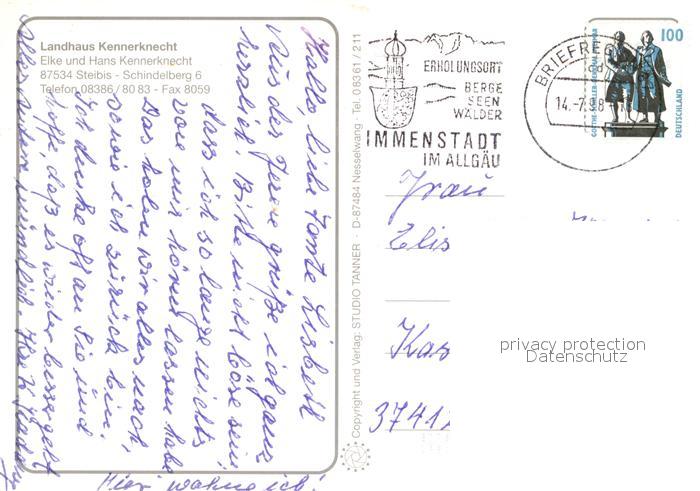 Landhaus Kennerknecht
Elke und Hans Kennerknecht
87534 Steibis - Schindelberg 6
Telefon 08386 / 80 83 - Fax 8059
Hallo, liebe Tante Lisbeth
Aus der Ferne grüße ich ganz
herzlich. Bitte nicht böse sein
dass ich so lange nichts
von mir hören lassen habe
Das holen wir alles nach,
sowie ich zurück bin.
Ich denke oft an Sie und
hoffe, daß es wieder besser geht
Alles andere mündlich.
Hier wohne ich!
Copyright und Verlag: STUDIO TANNER · D-87484 Nesselwang · Tel. 08361 / 211
ERHOLUNGSORT
BERGE
SEEN
WÄLDER
IMMENSTADT
IM ALLGÄU
BRIEFREG
14.-7.98
100
DEUTSCHLAND
GOETHE-SCHILLER-DENKMAL
Frau
Elis
Kas
3741
privacy protection
Datenschutz